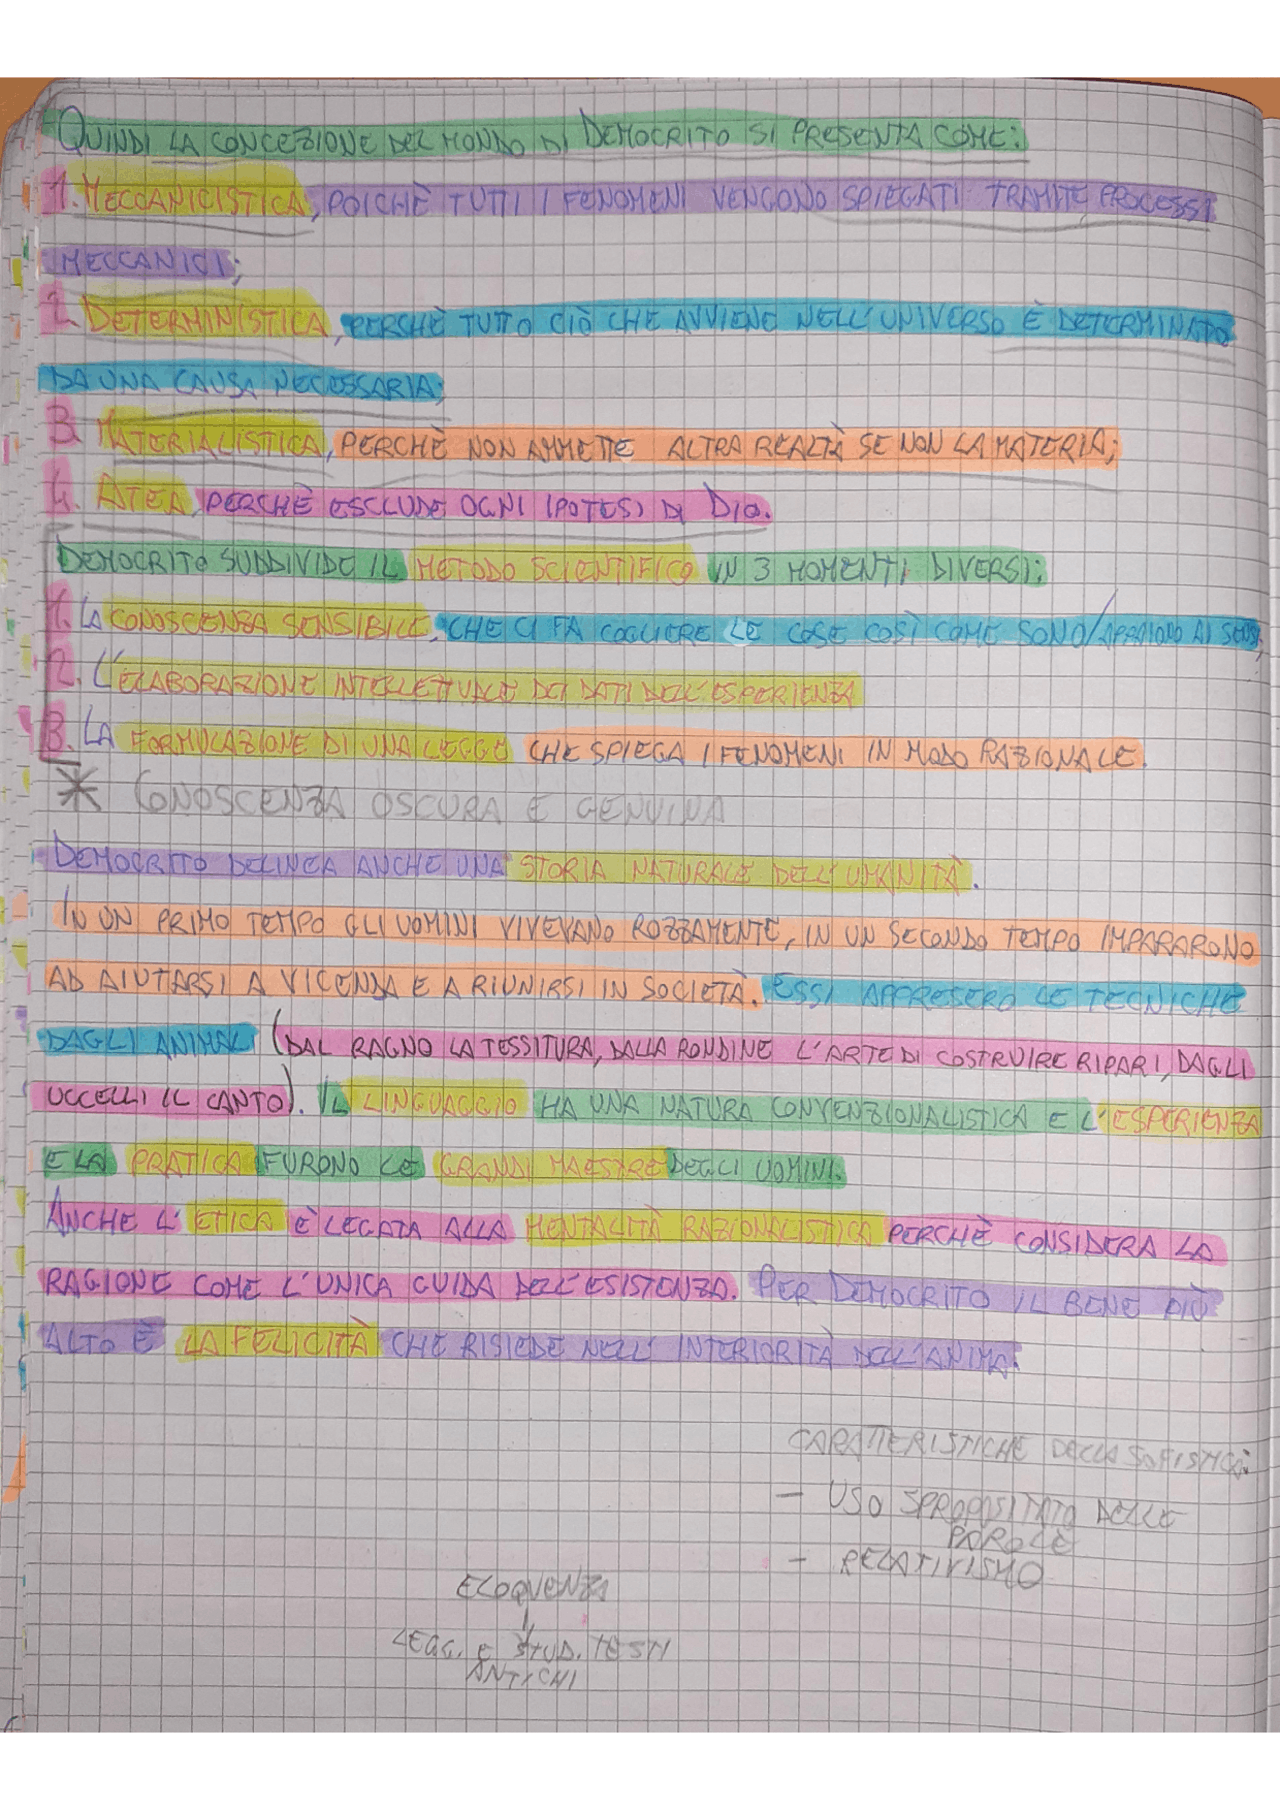 QUINDI LA CONCEZIONE DEL MONDO DI DEMOCRITO SI PRESENTA COME:
1. MECCANICISTICA, POICHÈ TUTTI I FENOMENI VENGONO SPIEGATI TRAMITE PROCESSI
MECCANICI;
2. DETERMINISTICA, PERCHÈ TUTTO CIÒ CHE AVVIENE NELL'UNIVERSO È DETERMINATO
DA UNA CAUSA NECESSARIA;
3. MATERIALISTICA, PERCHÈ NON AMMETTE ALTRA REALTÀ SE NON LA MATERIA;
4. ATEA, PERCHÈ ESCLUDE OGNI IPOTESI DI DIO.
DEMOCRITO SUDDIVIDE IL METODO SCIENTIFICO IN 3 MOMENTI DIVERSI:
1. LA CONOSCENZA SENSIBILE, CHE CI FA COGLIERE LE COSE COSÌ COME SONO/APPAIONO AI SENSI;
2. L'ELABORAZIONE INTELLETTUALE DEI DATI DELL'ESPERIENZA
3. LA FORMULAZIONE DI UNA LEGGE CHE SPIEGA I FENOMENI IN MODO RAZIONALE.
* CONOSCENZA OSCURA E GENUINA
DEMOCRITO DELINEA ANCHE UNA STORIA NATURALE DELL'UMANITÀ.
IN UN PRIMO TEMPO GLI UOMINI VIVEVANO ROZZAMENTE, IN UN SECONDO TEMPO IMPARARONO
AD AIUTARSI A VICENDA E A RIUNIRSI IN SOCIETÀ. ESSI APPRESERO LE TECNICHE
DAGLI ANIMALI (DAL RAGNO LA TESSITURA, DALLA RONDINE L'ARTE DI COSTRUIRE RIPARI, DAGLI
UCCELLI IL CANTO). IL LINGUAGGIO HA UNA NATURA CONVENZIONALISTICA E L'ESPERIENZA
E LA PRATICA FURONO LE GRANDI MAESTRE DEGLI UOMINI.
ANCHE L'ETICA È LEGATA ALLA MENTALITÀ RAZIONALISTICA PERCHÈ CONSIDERA LA
RAGIONE COME L'UNICA GUIDA DELL'ESISTENZA. PER DEMOCRITO IL BENE PIÙ
ALTO È LA FELICITÀ CHE RISIEDE NELL'INTERIORITÀ DELL'ANIMA.
CARATTERISTICHE DELLA SOFISTICA:
- USO SPROPOSITATO DELLE
PAROLE
- RELATIVISMO
ELOQUENZA
LEGG. E STUD. TESTI
ANTICHI